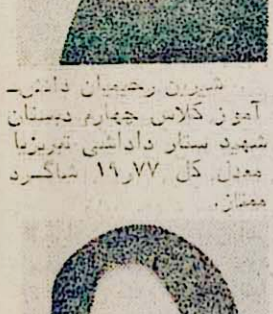 شیرین رحیمیان دانش‌ـ
آموز کلاس چهارم دبستان
شهید ستار داداشی تبریزبا
معدل کل ۱۹٫۷۷ شاگـرد
ممتاز.